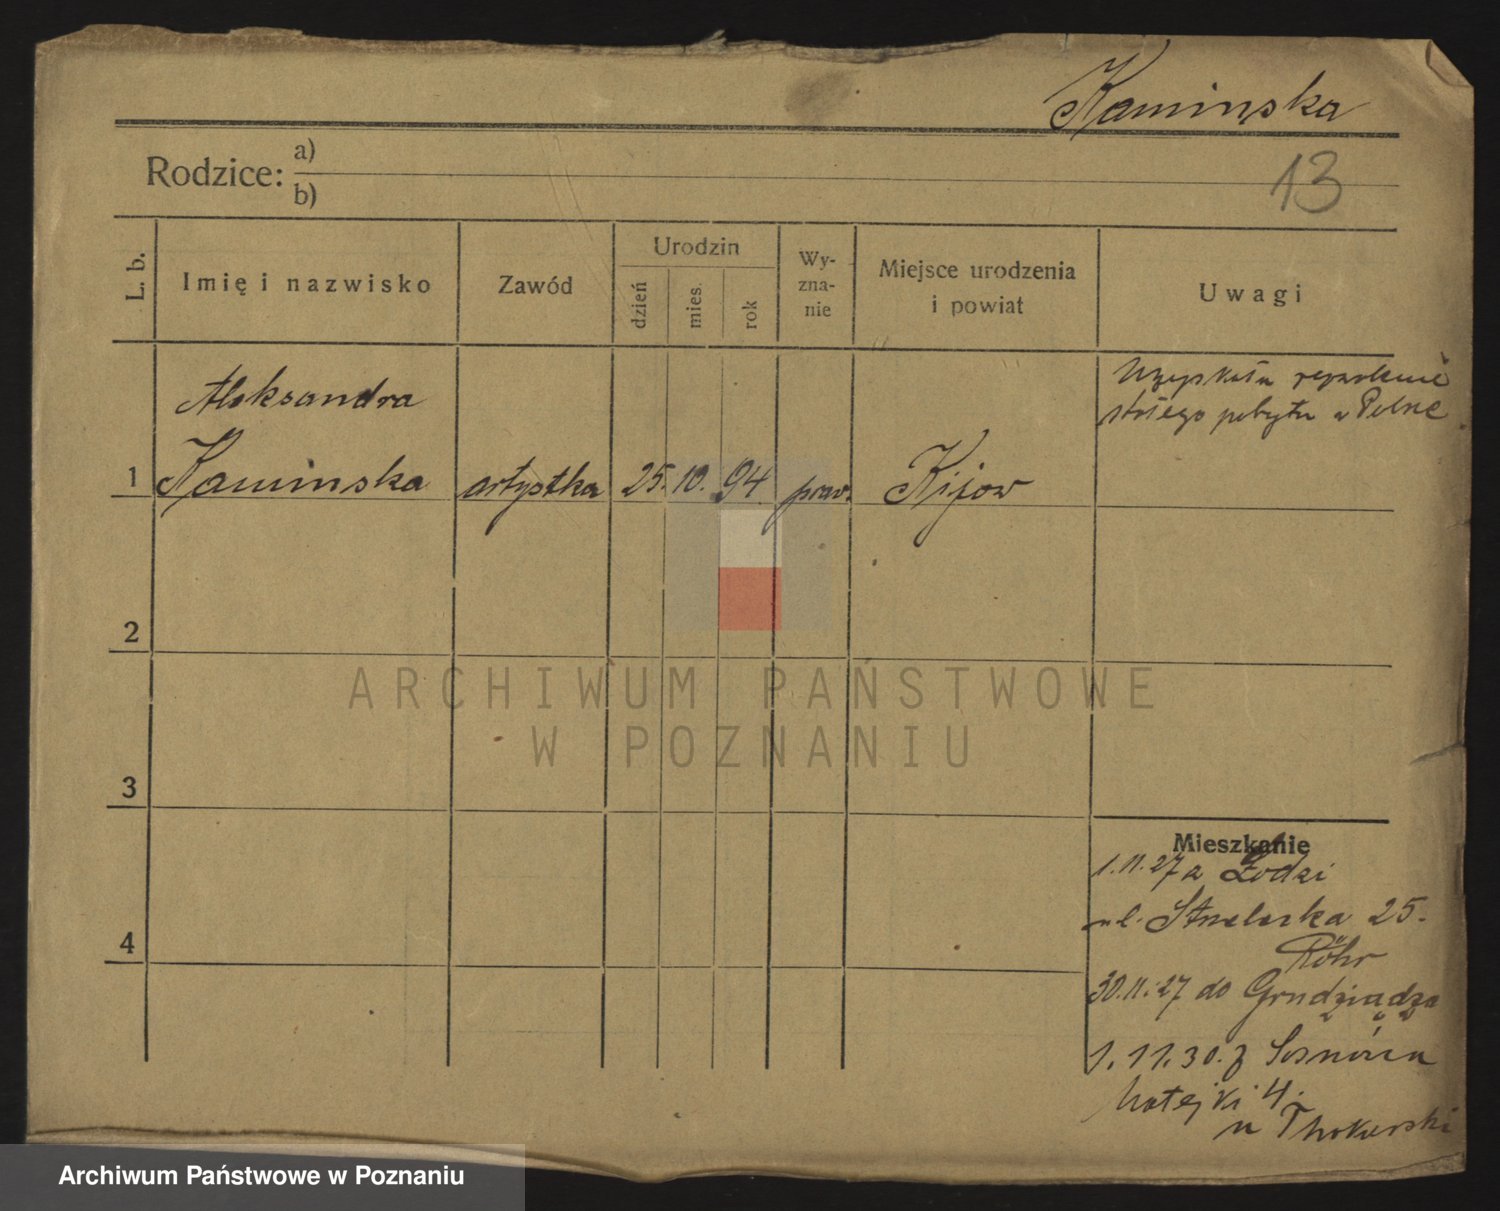 Kamińska
13
Rodzice: a)
b)
L. b.
Imię i nazwisko
Zawód
Urodzin
dzień
mies.
rok
Wy-
zna-
nie
Miejsce urodzenia
i powiat
Uwagi
Aleksandra
1 Kaminska artystka 25. 10. 94 praw. Kijow
stałego pobytu w Polsce
2
3
4
Mieszkanie
1.11.27 z Łodzi
ul. Strzelecka 25.
Röhr
30.11.27 do Grudziądza
1.11.30. z Sosnowca
Matejki 4.
ARCHIWUM PAŃSTWOWE
W POZNANIU
Archiwum Państwowe w Poznaniu